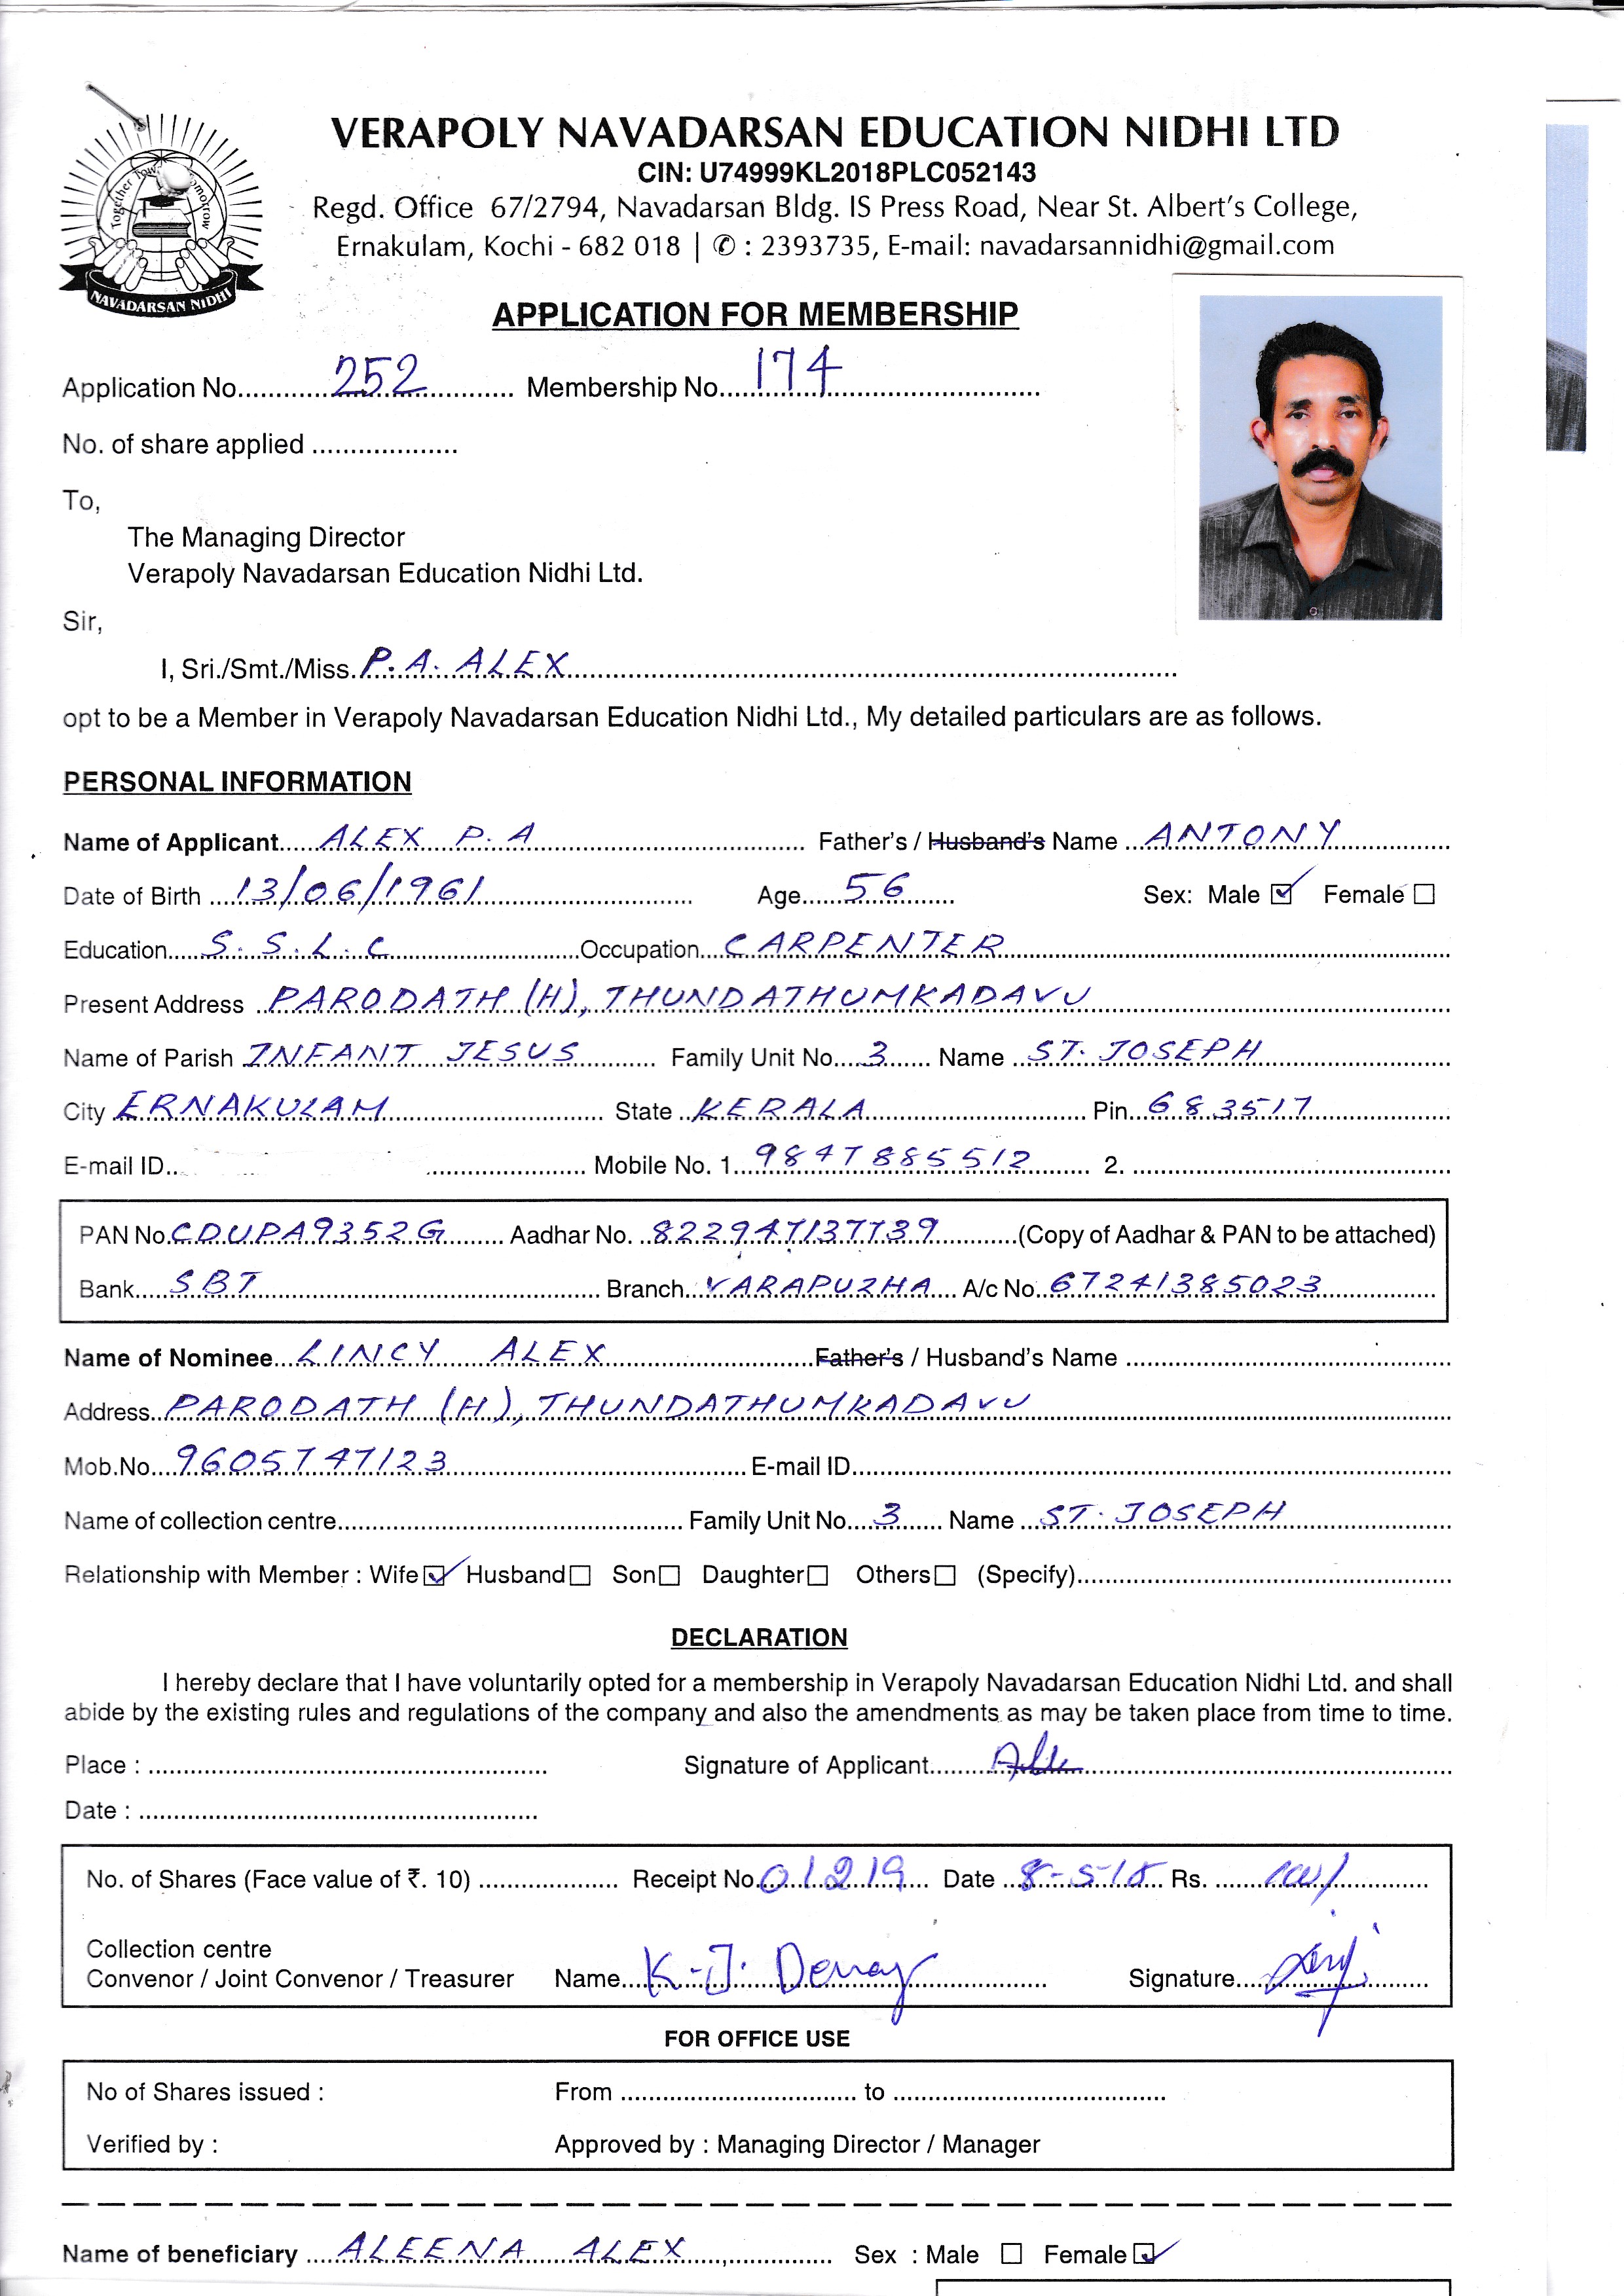 VERAPOLY NAVADARSAN EDUCATION NIDHI LTD
CIN: U74999KL2018PLC052143
Regd. Office 67/2794, Navadarsan Bldg. IS Press Road, Near St. Albert's College,
Ernakulam, Kochi - 682 018 | ✆ : 2393735, E-mail: navadarsannidhi@gmail.com
NAVADARSAN NIDHI
APPLICATION FOR MEMBERSHIP
Application No. 252 Membership No. 174
No. of share applied
To,
The Managing Director
Verapoly Navadarsan Education Nidhi Ltd.
Sir,
I, Sri./Smt./Miss. P. A. ALEX
opt to be a Member in Verapoly Navadarsan Education Nidhi Ltd., My detailed particulars are as follows.
PERSONAL INFORMATION
Name of Applicant ALEX P. A Father's / Husband's Name ANTONY
Date of Birth 13/06/1961 Age 56 Sex: Male ☑ Female ☐
Education S. S. L. C Occupation CARPENTER
Present Address PARODATH (H), THUNDATHUMKADAVU
Name of Parish INFANT JESUS Family Unit No. 3 Name ST. JOSEPH
City ERNAKULAM State KERALA Pin 683517
E-mail ID Mobile No. 1. 9847885512 2.
PAN No. CDUPA9352G Aadhar No. 822947137739 (Copy of Aadhar & PAN to be attached)
Bank SBT Branch VARAPUZHA A/c No. 67241385023
Name of Nominee LINCY ALEX Father's / Husband's Name
Address PARODATH (H), THUNDATHUMKADAVU
Mob.No. 9605747123 E-mail ID
Name of collection centre Family Unit No. 3 Name ST. JOSEPH
Relationship with Member : Wife ☑ Husband ☐ Son ☐ Daughter ☐ Others ☐ (Specify)
DECLARATION
I hereby declare that I have voluntarily opted for a membership in Verapoly Navadarsan Education Nidhi Ltd. and shall
abide by the existing rules and regulations of the company and also the amendments as may be taken place from time to time.
Place : Signature of Applicant
Date :
No. of Shares (Face value of ₹. 10) Receipt No. 01219 Date 8-5-18 Rs. 100/
Collection centre
Convenor / Joint Convenor / Treasurer Name K.J. Signature
FOR OFFICE USE
No of Shares issued : From to
Verified by : Approved by : Managing Director / Manager
Name of beneficiary ALEENA ALEX Sex : Male ☐ Female ☑